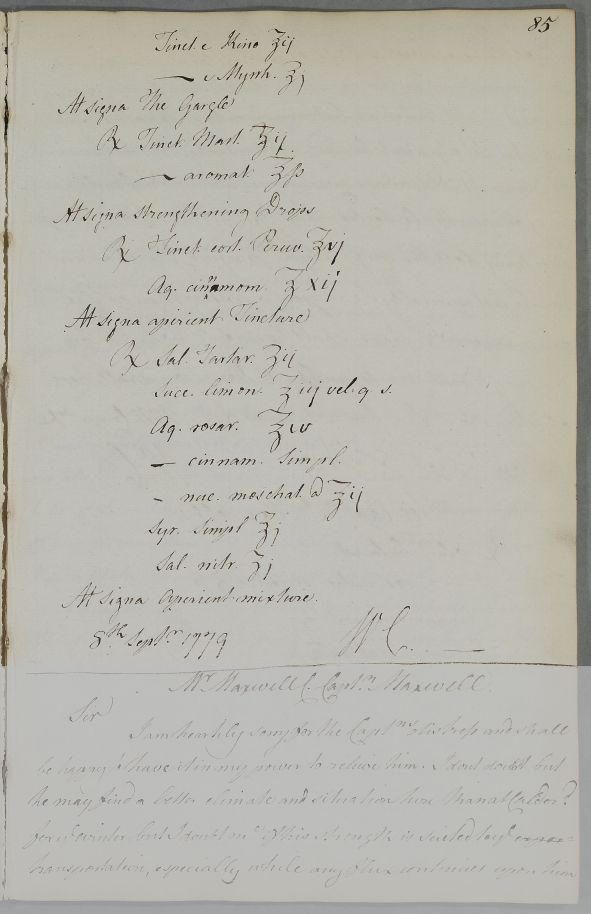 85
Tinct. e Kino ʒij
— e Myrrh. ʒj
M signa The Gargle
℞ Tinct. Mart. ʒij
— aromat. ʒſs
M signa strengthening Drops
℞ Tinct. cort. Peruv. ʒvj
Aq. cinnamom. ʒxij
M signa aperient Tincture
℞ Sal. Tartar. ʒij
Succ. limon. ʒiij vel. q. s.
Aq. rosar. ʒiv
— cinnam. simpl.
— nuc. moschat. a ʒij
Syr. simpl ʒj
Sal. nitr. ʒj
M signa Aperient mixture.
8th Septr. 1779 WC.
Mr. Maxwell C. Captn. Maxwell.
Sir
I am heartily sorry for the Captns distress and shall
be happy if I have it in my power to relieve him. I dont doubt but
he may find a better climate and situation than at
for ye winter but I doubt his strength is suited to ye
transportation, especially while any flux continues upon him